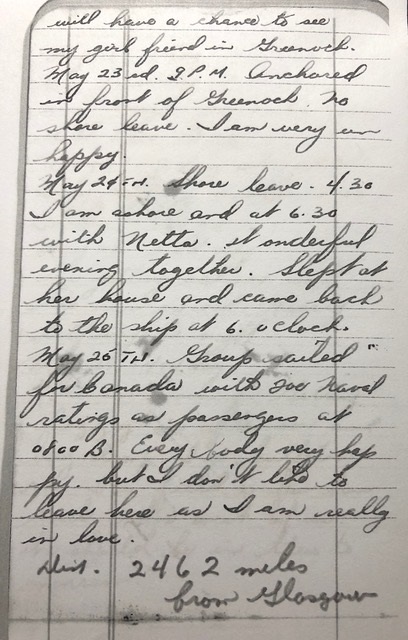 will have a chance to see
my girl friend in Greenock.
May 23 rd. 9 P.M. Anchored
in front of Greenock. No
shore leave. I am very un
happy.
May 24 TH. Shore leave. 4.30
I am ashore and at 6.30
with Netta. Wonderful
evening together. Slept at
her house and came back
to the ship at 6. oclock.
May 25 TH. Group sailed
for Canada with 200 naval
ratings as passengers at
0800 B. Every body very hap
py. but I don't like to
leave here as I am really
in love.
Dist. 2462 miles
from Glasgow